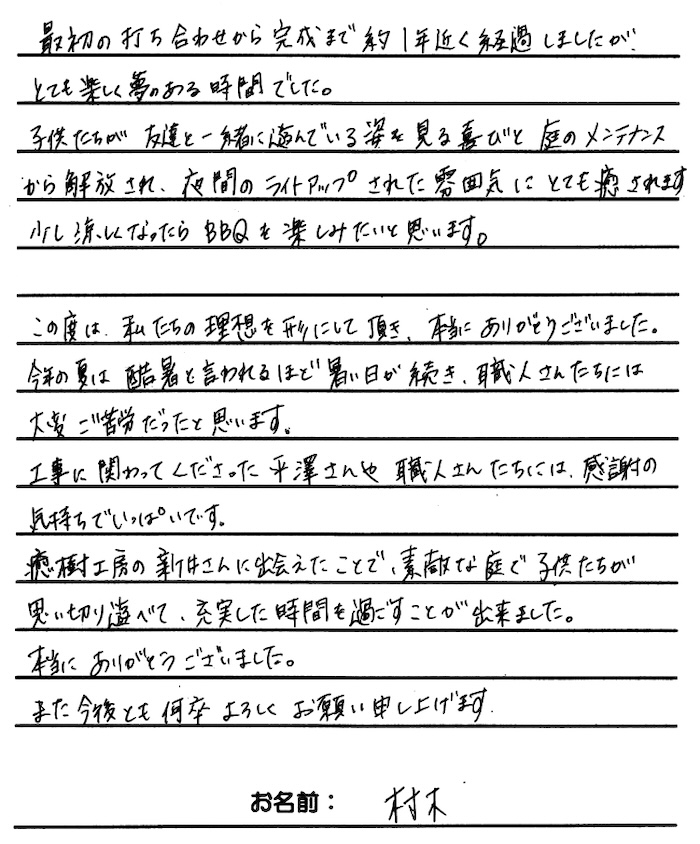 最初の打ち合わせから完成まで約1年近く経過しましたが、
とても楽しく夢のある時間でした。
子供たちが友達と一緒に遊んでいる姿を見る喜びと庭のメンテナンス
から解放され、夜間のライトアップされた雰囲気にとても癒されます
少し涼しくなったらBBQを楽しみたいと思います。
この度は、私たちの理想を形にして頂き、本当にありがとうございました。
今年の夏は酷暑と言われるほど暑い日が続き、職人さんたちには
大変ご苦労だったと思います。
工事に関わってくださった平澤さんや職人さんたちには、感謝の
気持ちでいっぱいです。
癒樹工房の新井さんに出会えたことで、素敵な庭で子供たちが
思い切り遊べて、充実した時間を過ごすことが出来ました。
本当にありがとうございました。
また今後とも何卒よろしくお願い申し上げます.
お名前： 村木